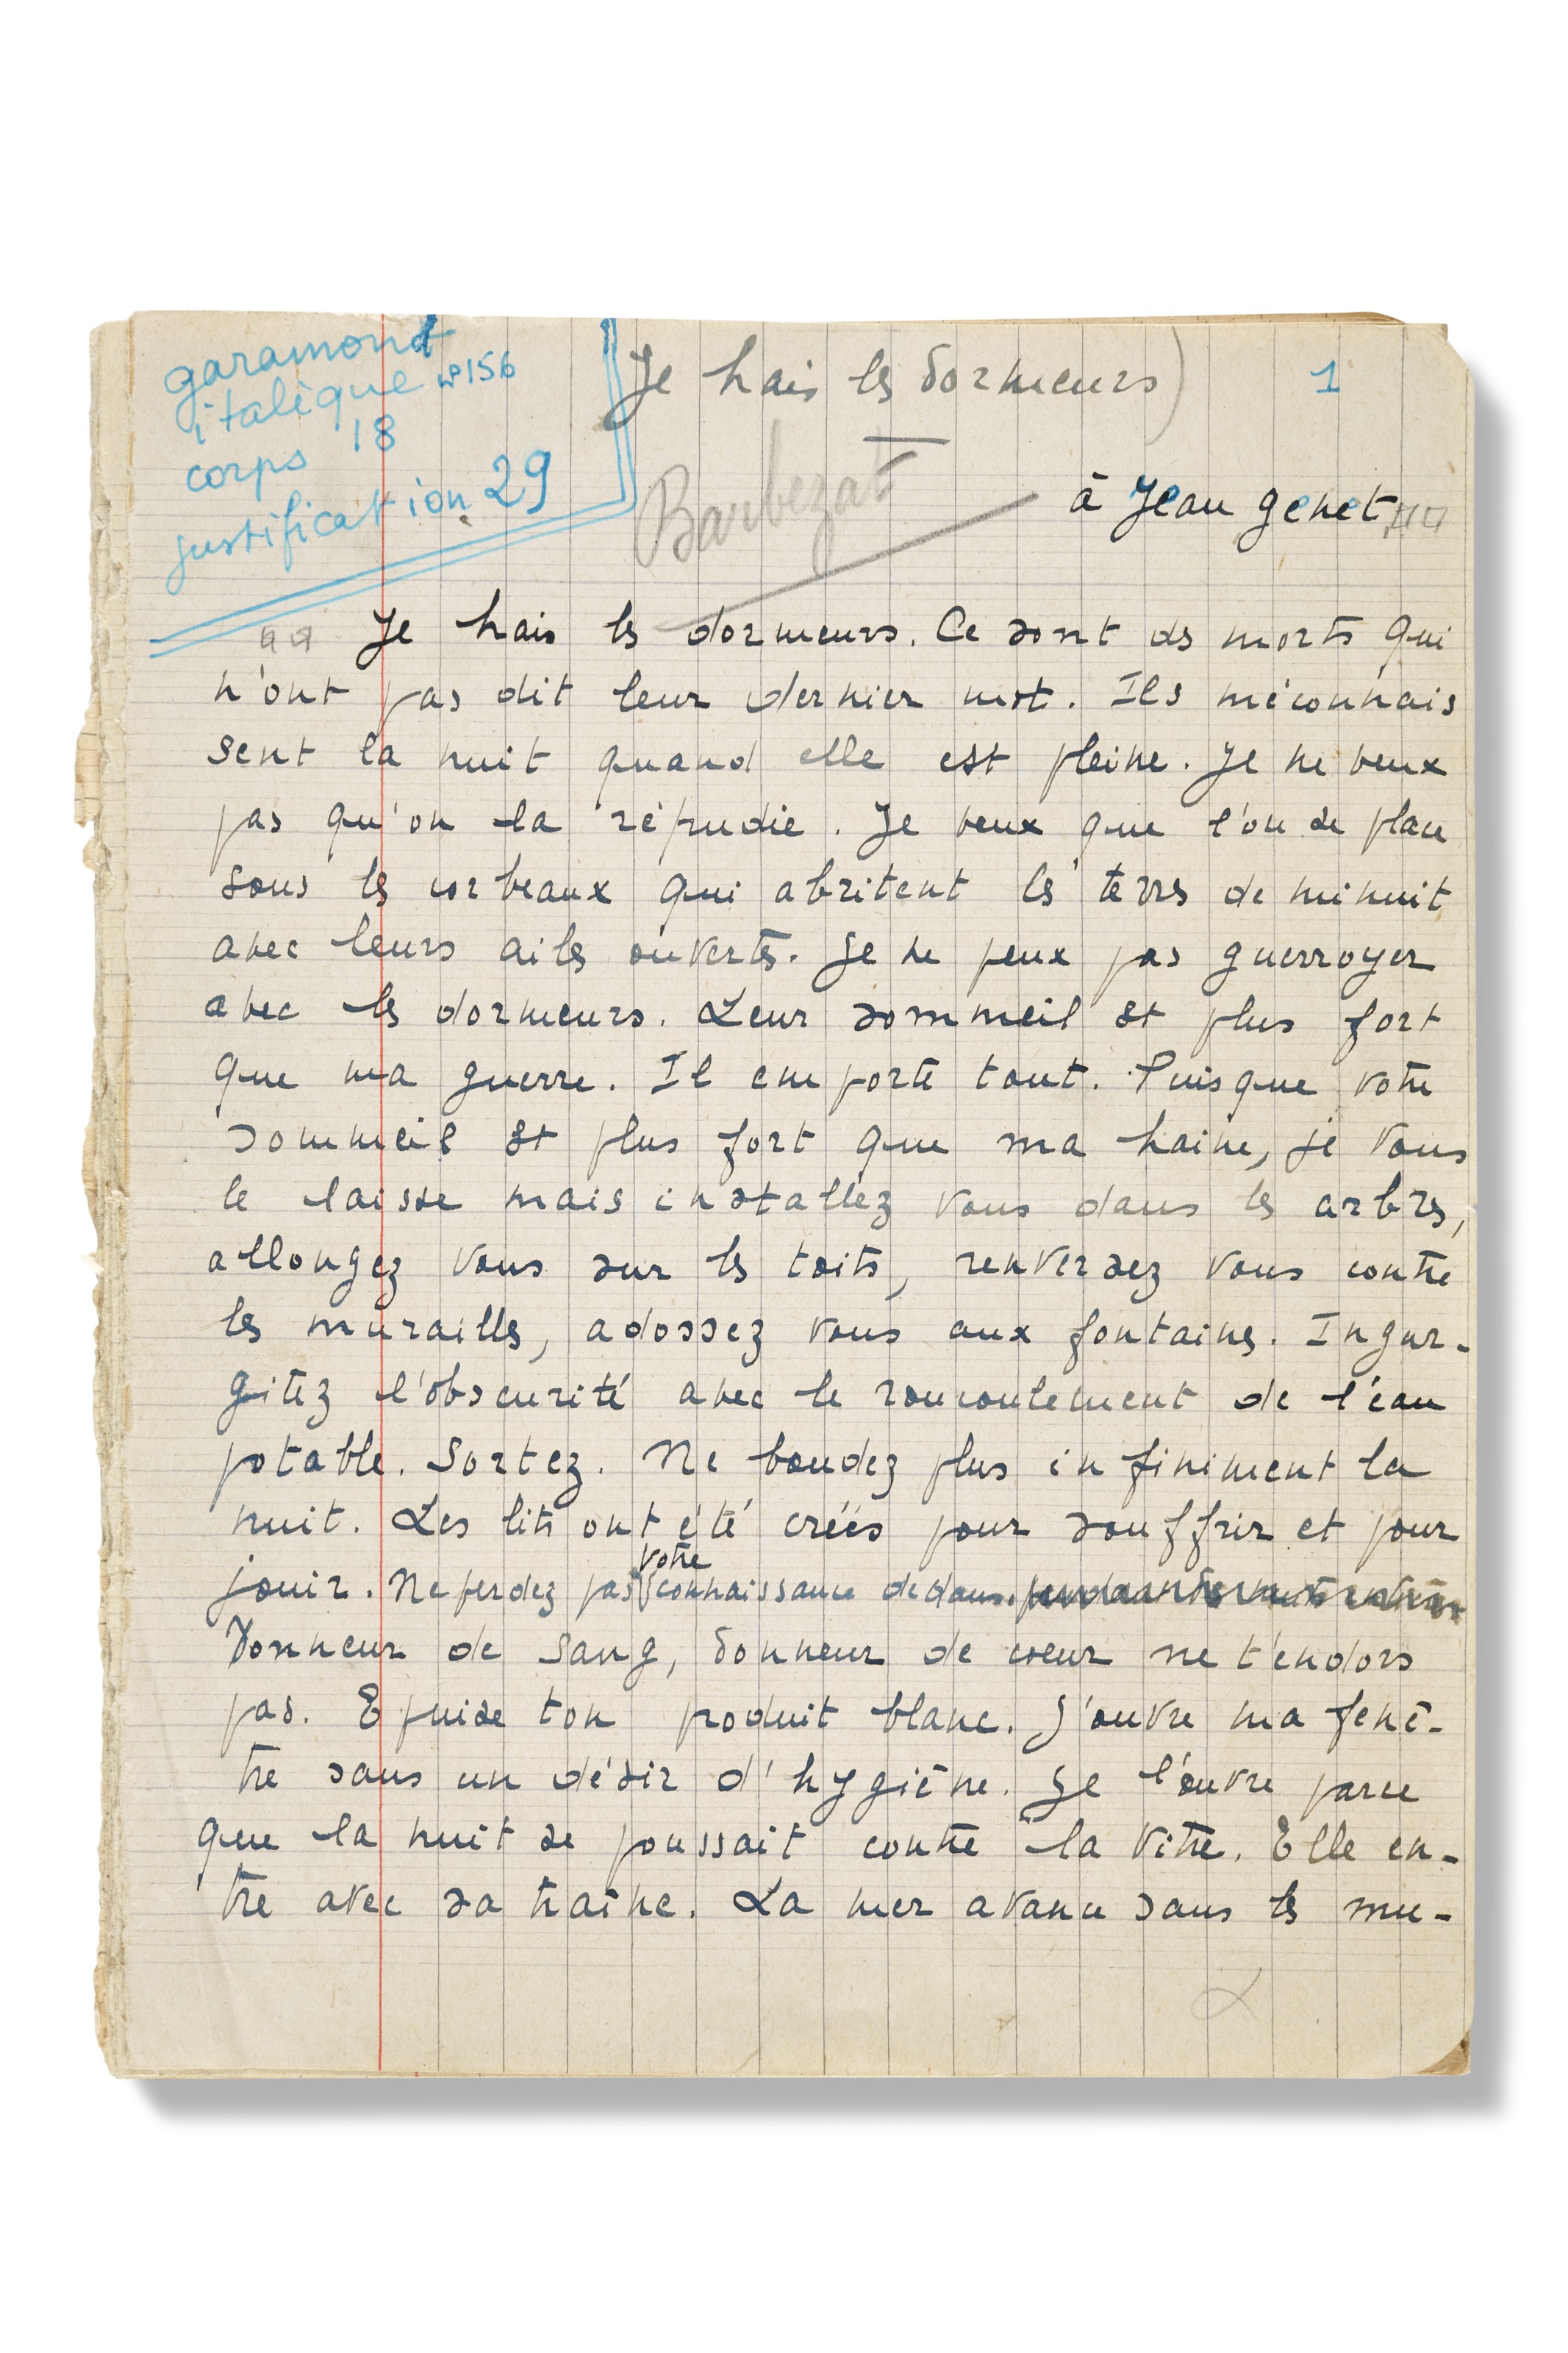 garamond
italique nº 156
corps 18
justification 29
Je hais les dormeurs)
1
Barbezat
à Jean Genet
Je hais les dormeurs. Ce sont des morts qui
n'ont pas dit leur dernier mot. Ils méconnais
sent la nuit quand elle est pleine. Je ne veux
pas qu'on la répudie. Je veux que l'on se place
sous les corbeaux qui abritent les terres de minuit
avec leurs ailes ouvertes. Je ne peux pas guerroyer
avec les dormeurs. Leur sommeil est plus fort
que ma guerre. Il emporte tout. Puisque votre
sommeil est plus fort que ma haine, je vous
le laisse mais installez vous dans les arbres,
allongez vous sur les toits, renversez vous contre
les murailles, adossez vous aux fontaines. Ingur-
gitez l'obscurité avec le roucoulement de l'eau
potable. Sortez. Ne boudez plus infiniment la
nuit. Les lits ont été créés pour souffrir et pour
jouir. Ne perdez pas votre connaissance dedans.
Donneur de sang, donneur de coeur ne t'endors
pas. Epuise ton produit blanc. J'ouvre ma fenê-
tre sans un désir d'hygiène. Je l'ouvre parce
que la nuit se poussait contre la vitre. Elle en-
tre avec sa traîne. La mer avance sans les mu-